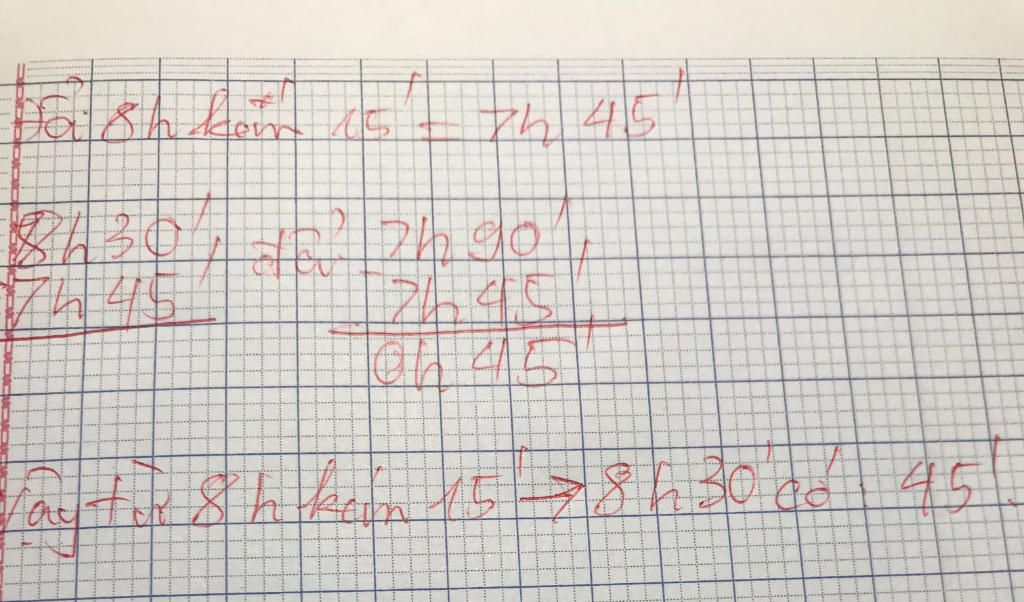 Đổi 8h kém 15' = 7h 45'
8h30', đổi 7h90',
7h45' - 7h45'
0h45'
Vậy từ 8h kém 15' → 8h30' có: 45'.